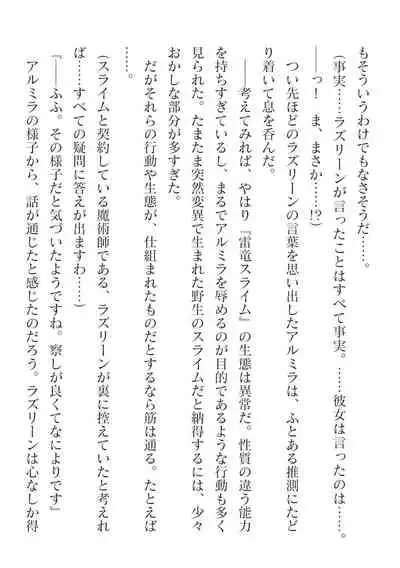 もそういうわけでもなさそうだ……。
（事実……ラズリーンが言ったことはすべて事実。……彼女は言ったのは……。
――っ！　ま、まさか……!?）
つい先ほどのラズリーンの言葉を思い出したアルミラは、ふとある推測にたど
り着いて息を呑んだ。
――考えてみれば、やはり『雷竜スライム』の生態は異常だ。性質の違う能力
を持ちすぎているし、まるでアルミラを辱めるのが目的であるような行動も多く
見られた。たまたま突然変異で生まれた野生のスライムだと納得するには、少々
おかしな部分が多すぎた。
だがそれらの行動や生態が、仕組まれたものだとするなら筋は通る。たとえば
（スライムと契約している魔術師である、ラズリーンが裏に控えていたと考えれ
ば……すべての疑問に答えが出ますわ……）
『――ふふ。その様子だと気づいたようですね。察しが良くてなによりです』
アルミラの様子から、話が通じたと感じたのだろう。ラズリーンは心なしか得